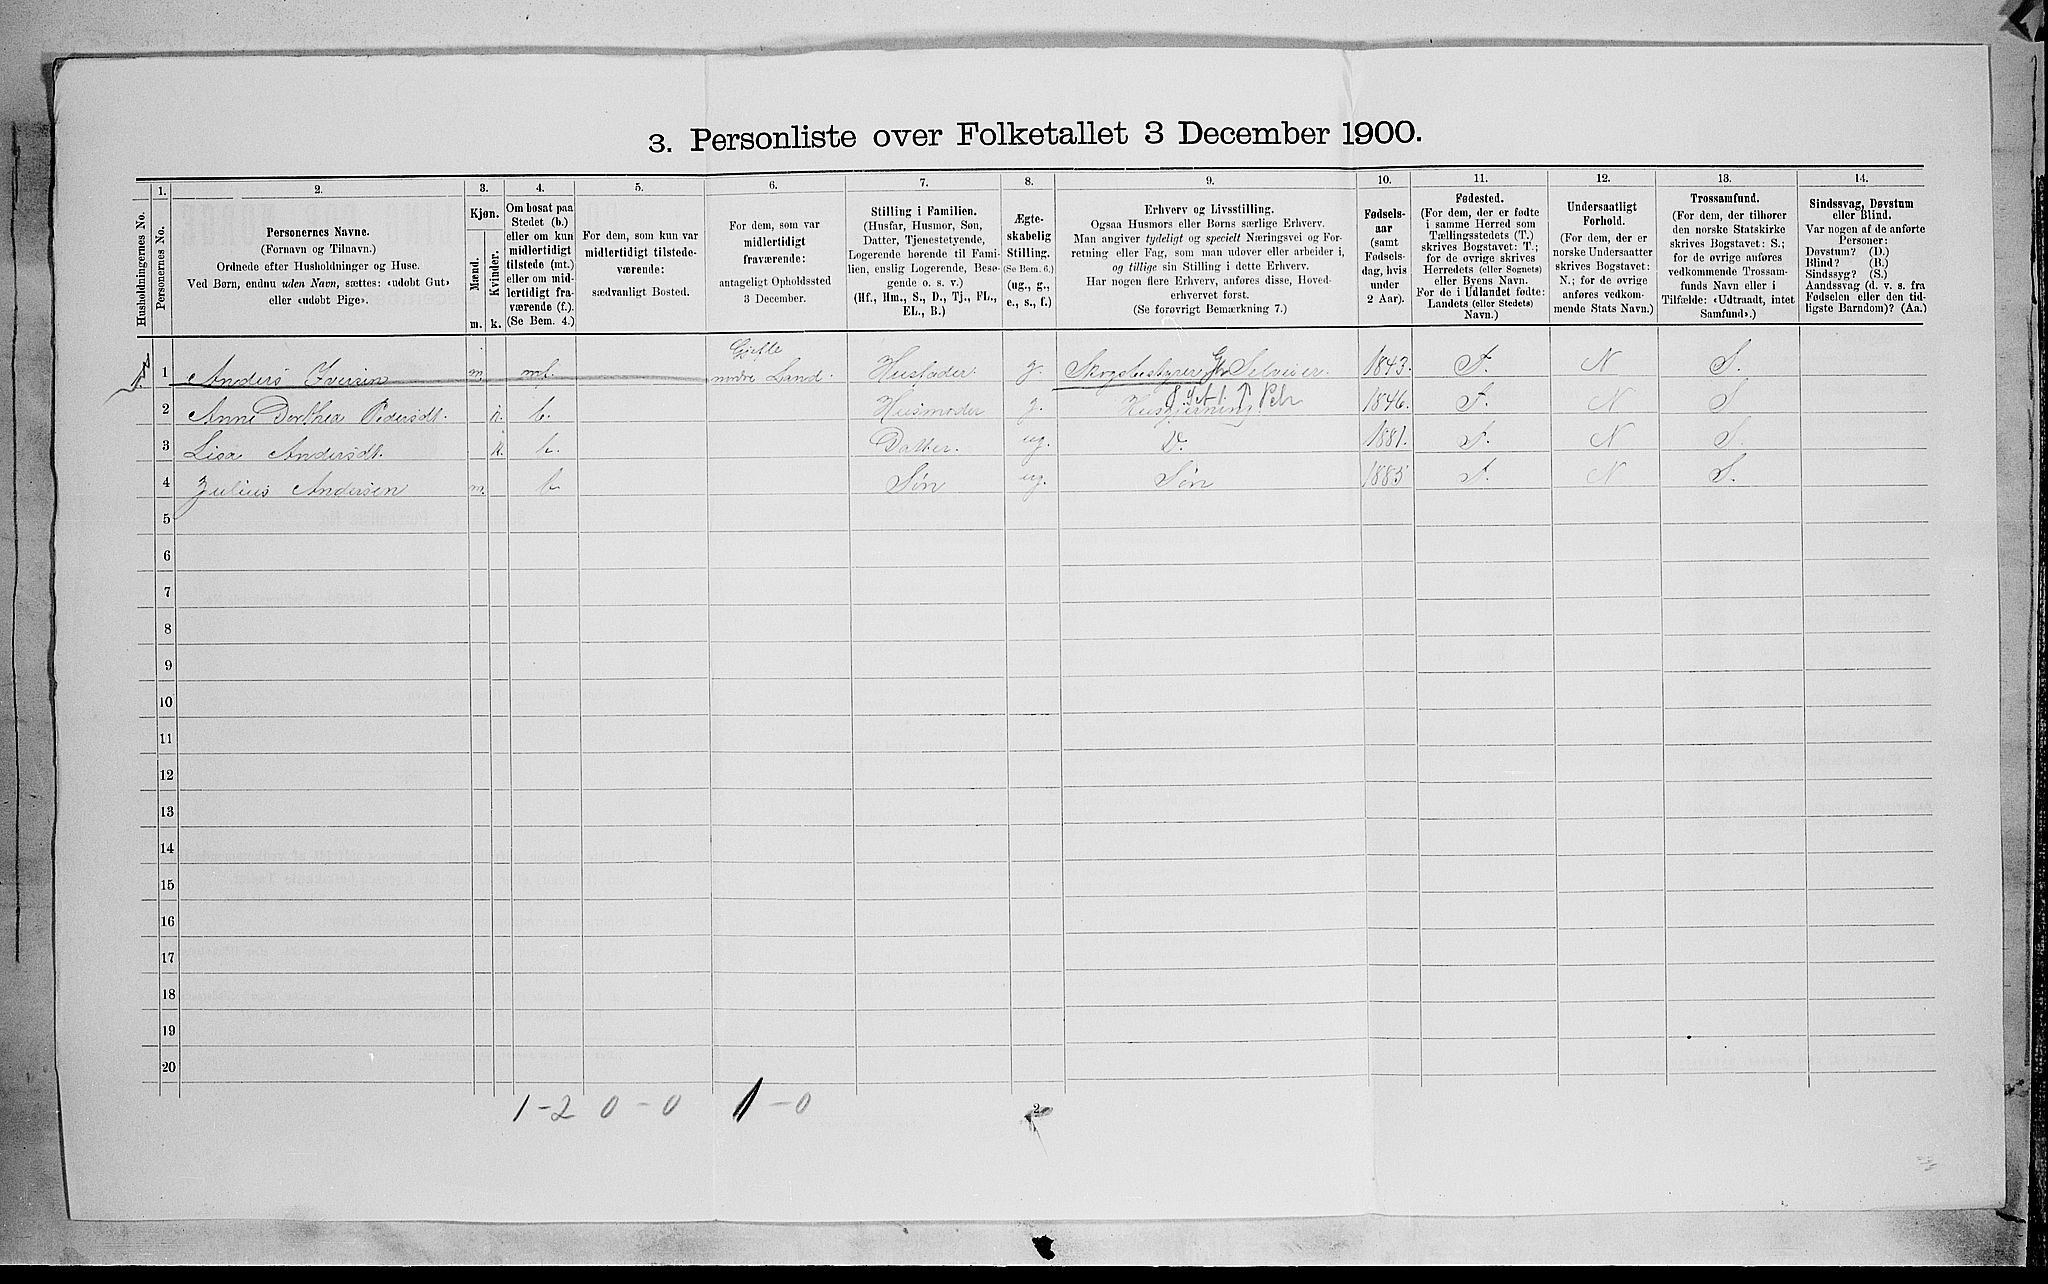 3. Personliste over Folketallet 3 December 1900.
Husholdningernes No.
1.
Personernes No.
2.
Personernes Navne.
(Fornavn og Tilnavn.)
Ordnede efter Husholdninger og Huse.
Ved Børn, endnu uden Navn, sættes: «udøbt Gut»
eller «udøbt Pige».
3.
Kjøn.
Mænd.
Kvinder.
m. k.
4.
Om bosat paa
Stedet (b.)
eller om kun
midlertidigt
tilstede (mt.)
eller om mid-
lertidigt fra-
værende (f.).
(Se Bem. 4.)
5.
For dem, som kun var
midlertidigt tilstede-
værende:
sædvanligt Bosted.
6.
For dem, som var
midlertidigt
fraværende:
antageligt Opholdssted
3 December.
7.
Stilling i Familien.
(Husfar, Husmor, Søn,
Datter, Tjenestetyende,
Logerende hørende til Fami-
lien, enslig Logerende, Besø-
gende o. s. v.)
(Hf., Hm., S., D., Tj., FL.,
EL., B.)
8.
Ægte-
skabelig
Stilling.
(Se Bem. 6.)
(ug., g.,
e., s., f.)
9.
Erhverv og Livsstilling.
Ogsaa Husmors eller Børns særlige Erhverv.
Man angiver tydeligt og specielt Næringsvei og For-
retning eller Fag, som man udøver eller arbeider i,
og tillige sin Stilling i dette Erhverv.
Har nogen flere Erhverv, anføres disse, Hoved-
erhvervet først.
(Se forøvrigt Bemærkning 7.)
10.
Fødsels-
aar
(samt
Fødsels-
dag, hvis
under
2 Aar).
11.
Fødested.
(For dem, der er fødte
i samme Herred som
Tællingsstedets (T.)
skrives Bogstavet: T.;
for de øvrige skrives
Herredets (eller Sognets)
eller Byens Navn.
For de i Udlandet fødte:
Landets (eller Stedets)
Navn.)
12.
Undersaatligt
Forhold.
(For dem, der er
norske Undersaatter
skrives Bogstavet:
N.; for de øvrige
anføres vedkom-
mende Stats Navn.)
13.
Trossamfund.
(For dem, der tilhører
den norske Statskirke
skrives Bogstav: S.;
for de øvrige anføres
vedkommende Trossam-
funds Navn eller i
Tilfælde: «Udtraadt, intet
Samfund».)
14.
Sindssvag, Døvstum
eller Blind.
Var nogen af de anførte
Personer:
Døvstum? (D.)
Blind? (B.)
Sindssyg? (S.)
Aandssvag (d. v. s. fra
Fødselen eller den tid-
ligste Barndom)? (Aa.)
1 Anders Iversen m. mt. nodre Land. Husfader g. Skogsbestyrer Selveier. 1843. T. N S.
2 Anne Dorthea Pedersdt. k. b. Husmoder g. Husgjerning 1846. T. N S
3 Lisa Andersdt. k. b. Datter. ug. D. 1881. T. N S.
4 Julius Andersen m. b. Søn ug. Søn 1885 T. N S.
5
6
7
8
9
10
11
12
13
14
15
16
17
18
19
20
1-2 0-0 1-0